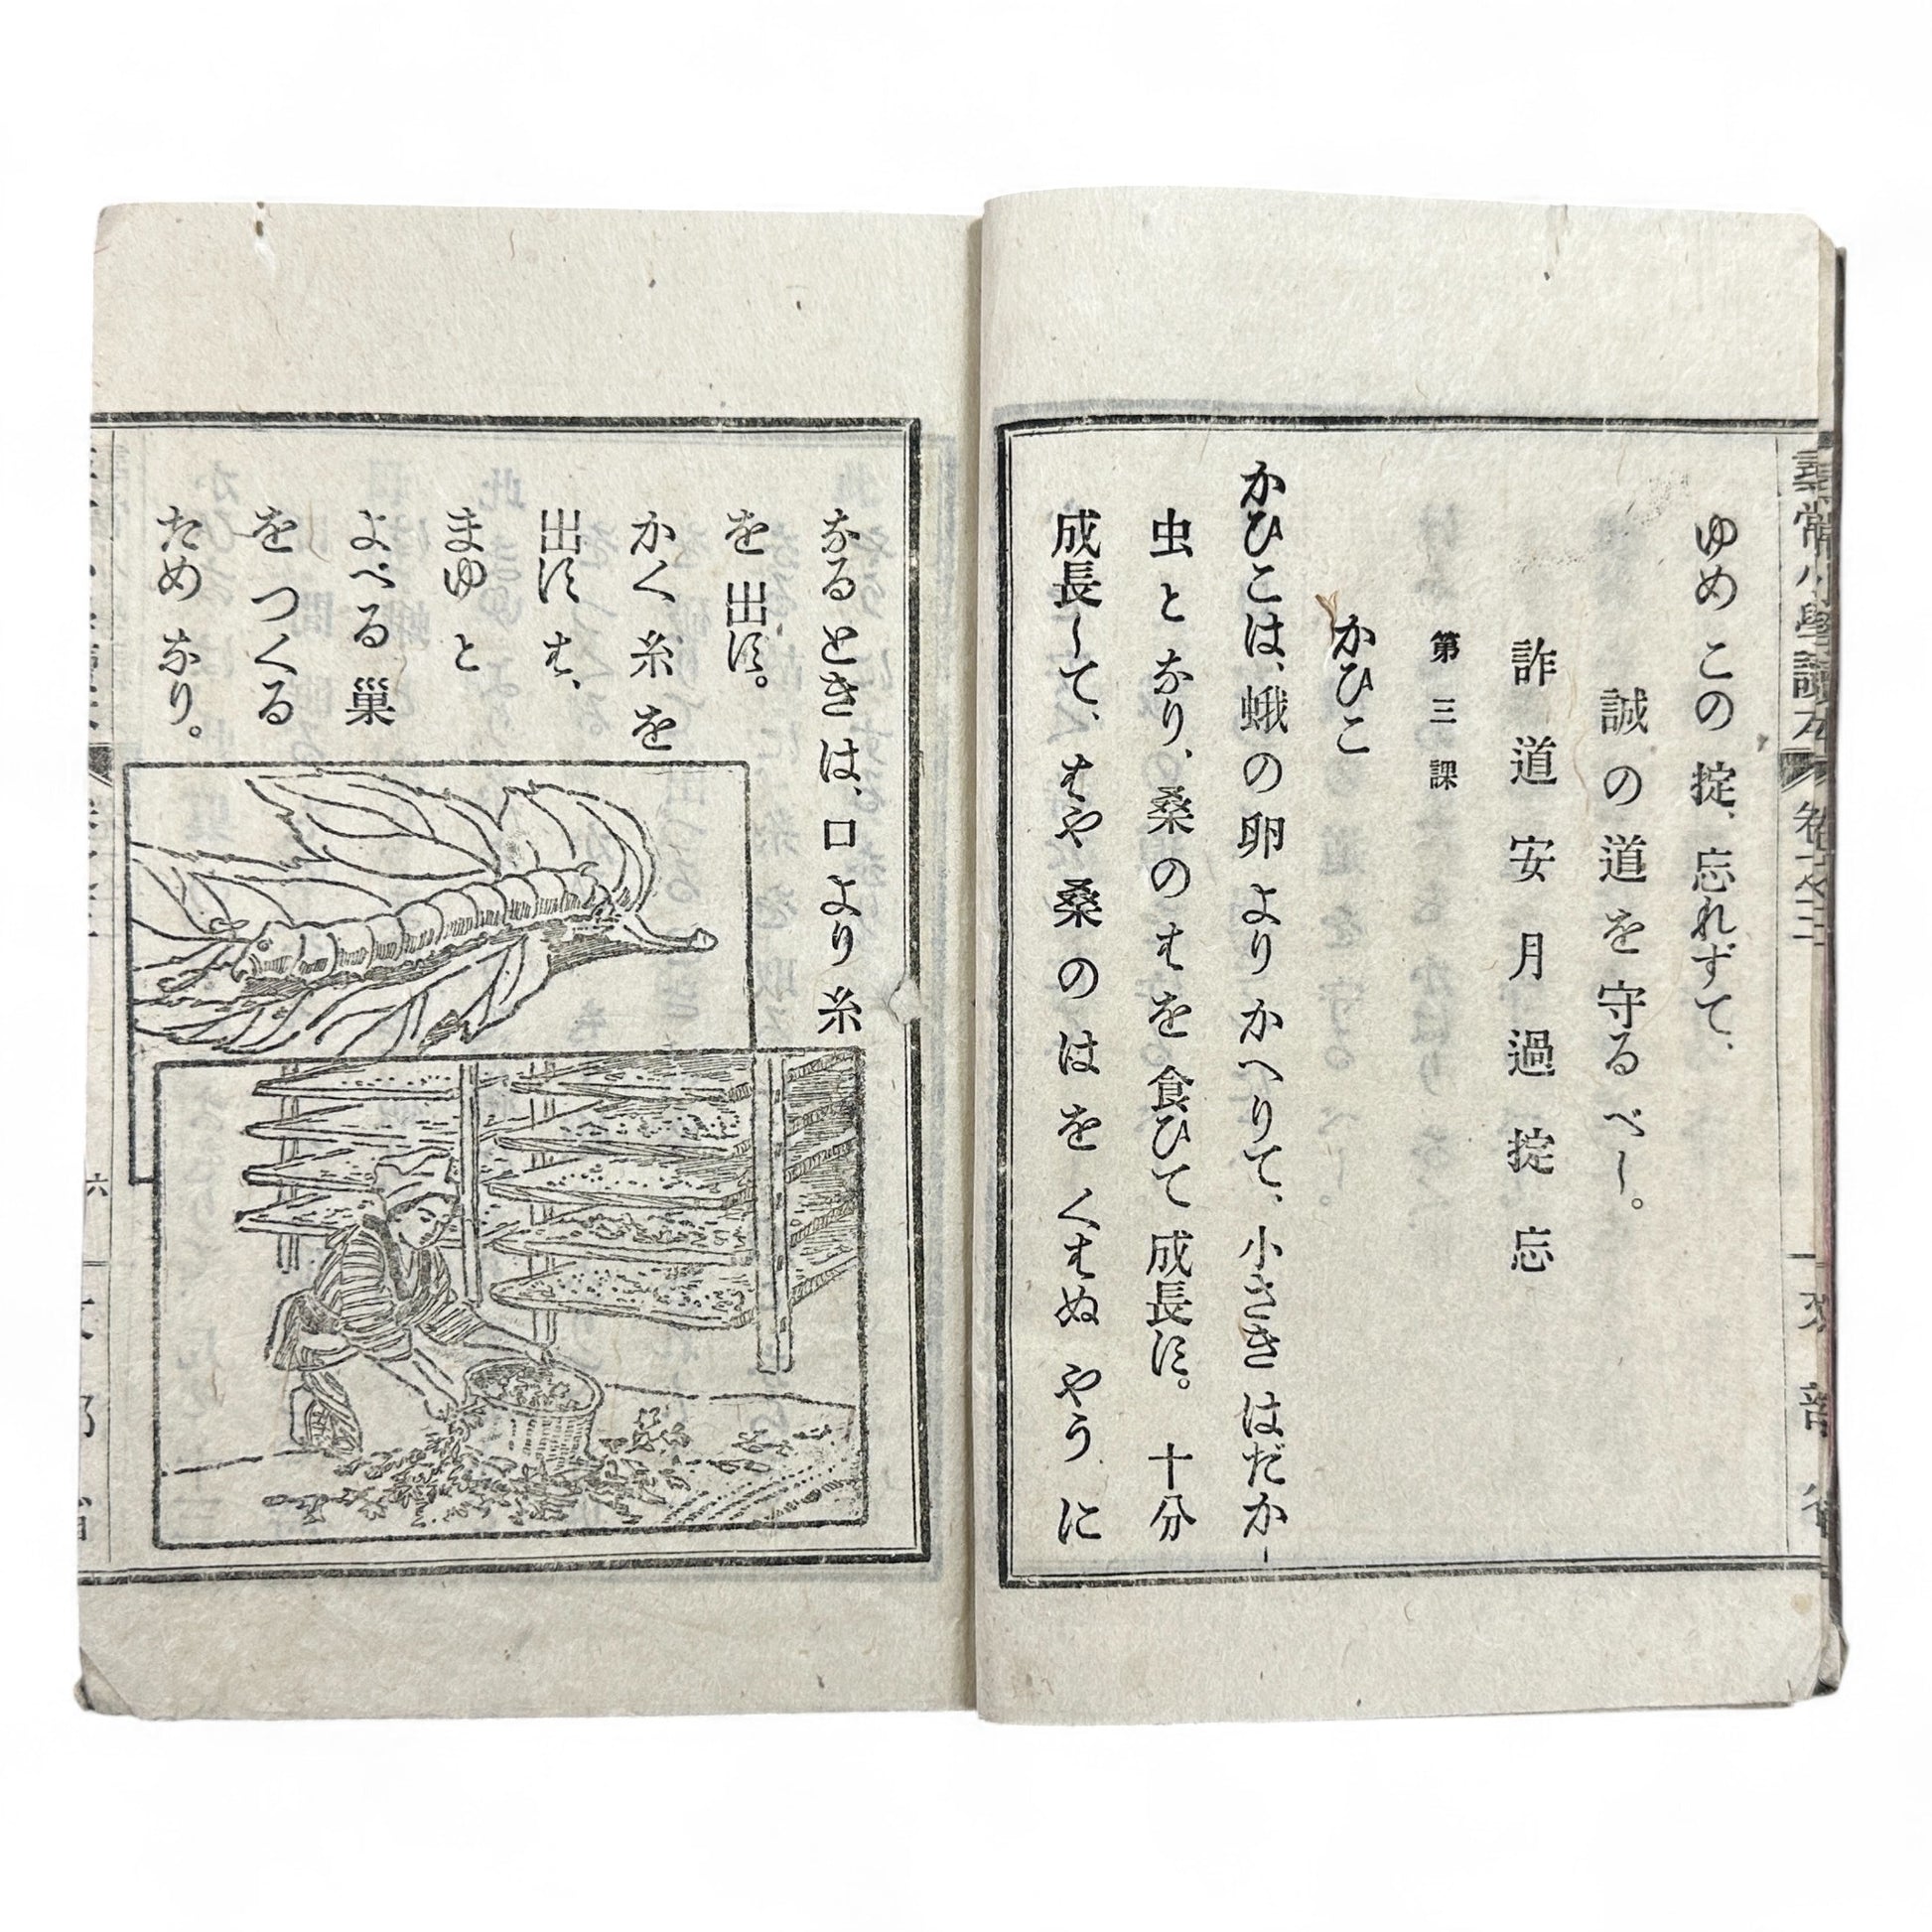 尋常小學讀本 卷之三
文部省
ゆめ この 掟、忘れずて、
誠の道を守る べし。
詐 道 安 月 過 掟 忘
第三課
かひこ
かひこは、蛾の卵より かへりて、小さき はだか-
虫と なり、桑のはを食ひて 成長す。 十分
成長して、はや桑のはを くはぬ やうに
なるときは、口より糸
を 出す。
かく 糸を
出すは、
まゆ と
よべる 巣
を つくる
ため なり。
六